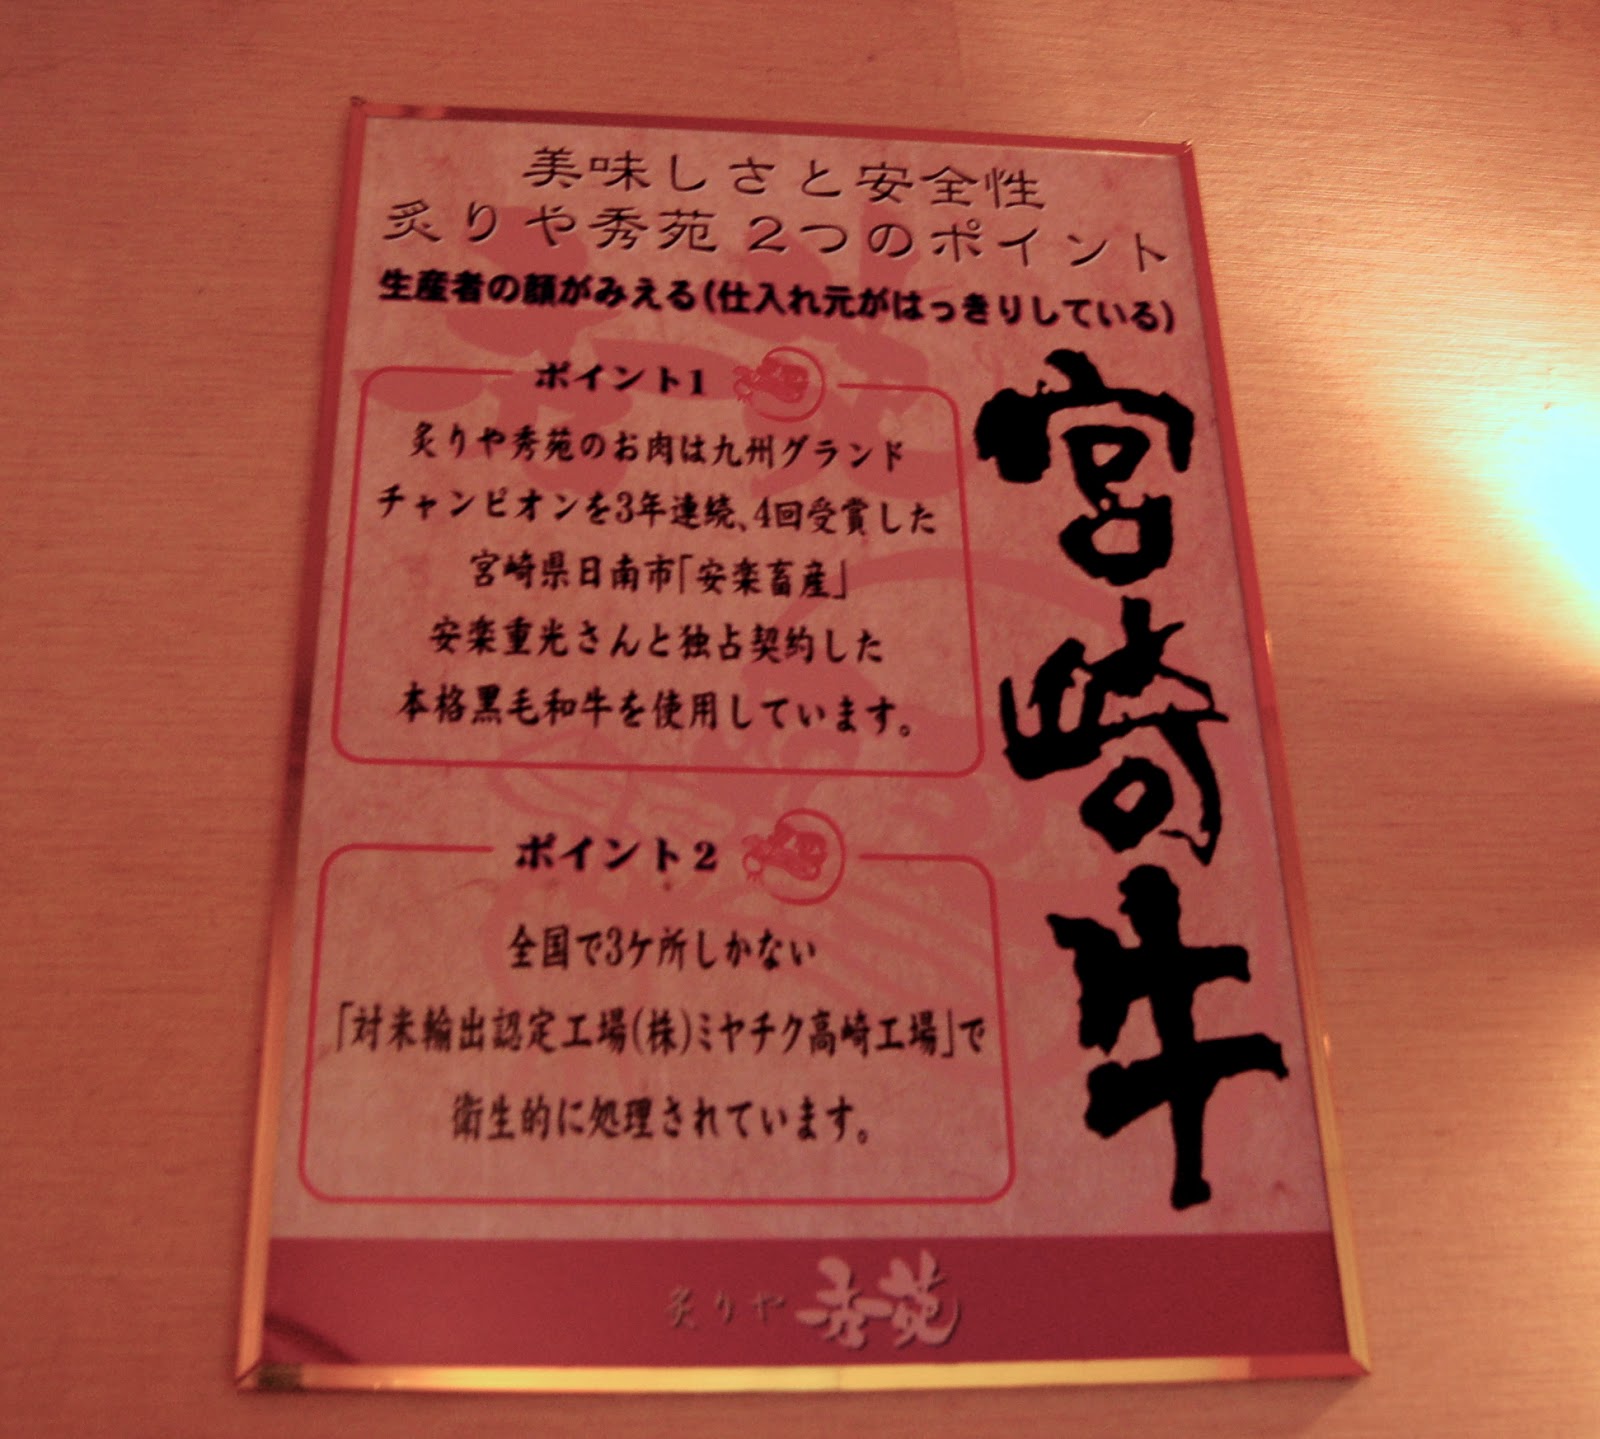 美味しさと安全性
炙りや秀苑 2つのポイント
生産者の顔がみえる(仕入れ元がはっきりしている)
宮崎牛
ポイント1
炙りや秀苑のお肉は九州グランド
チャンピオンを3年連続、4回受賞した
宮崎県日南市「安楽畜産」
安楽重光さんと独占契約した
本格黒毛和牛を使用しています。
ポイント2
全国で3ケ所しかない
「対米輸出認定工場(株)ミヤチク高崎工場」で
衛生的に処理されています。
炙りや 秀苑